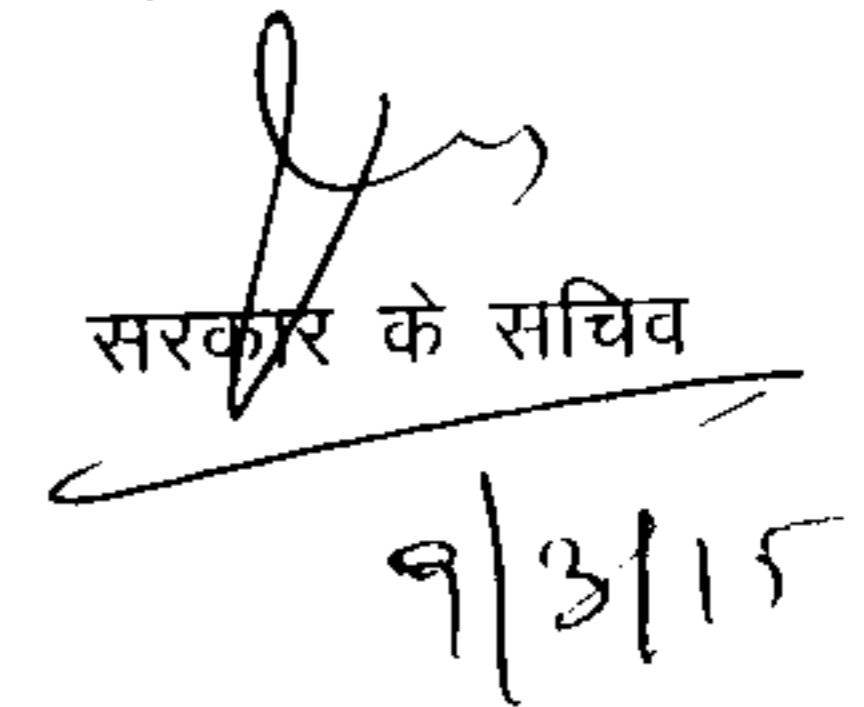 सरकार के सचिव
9/3/15